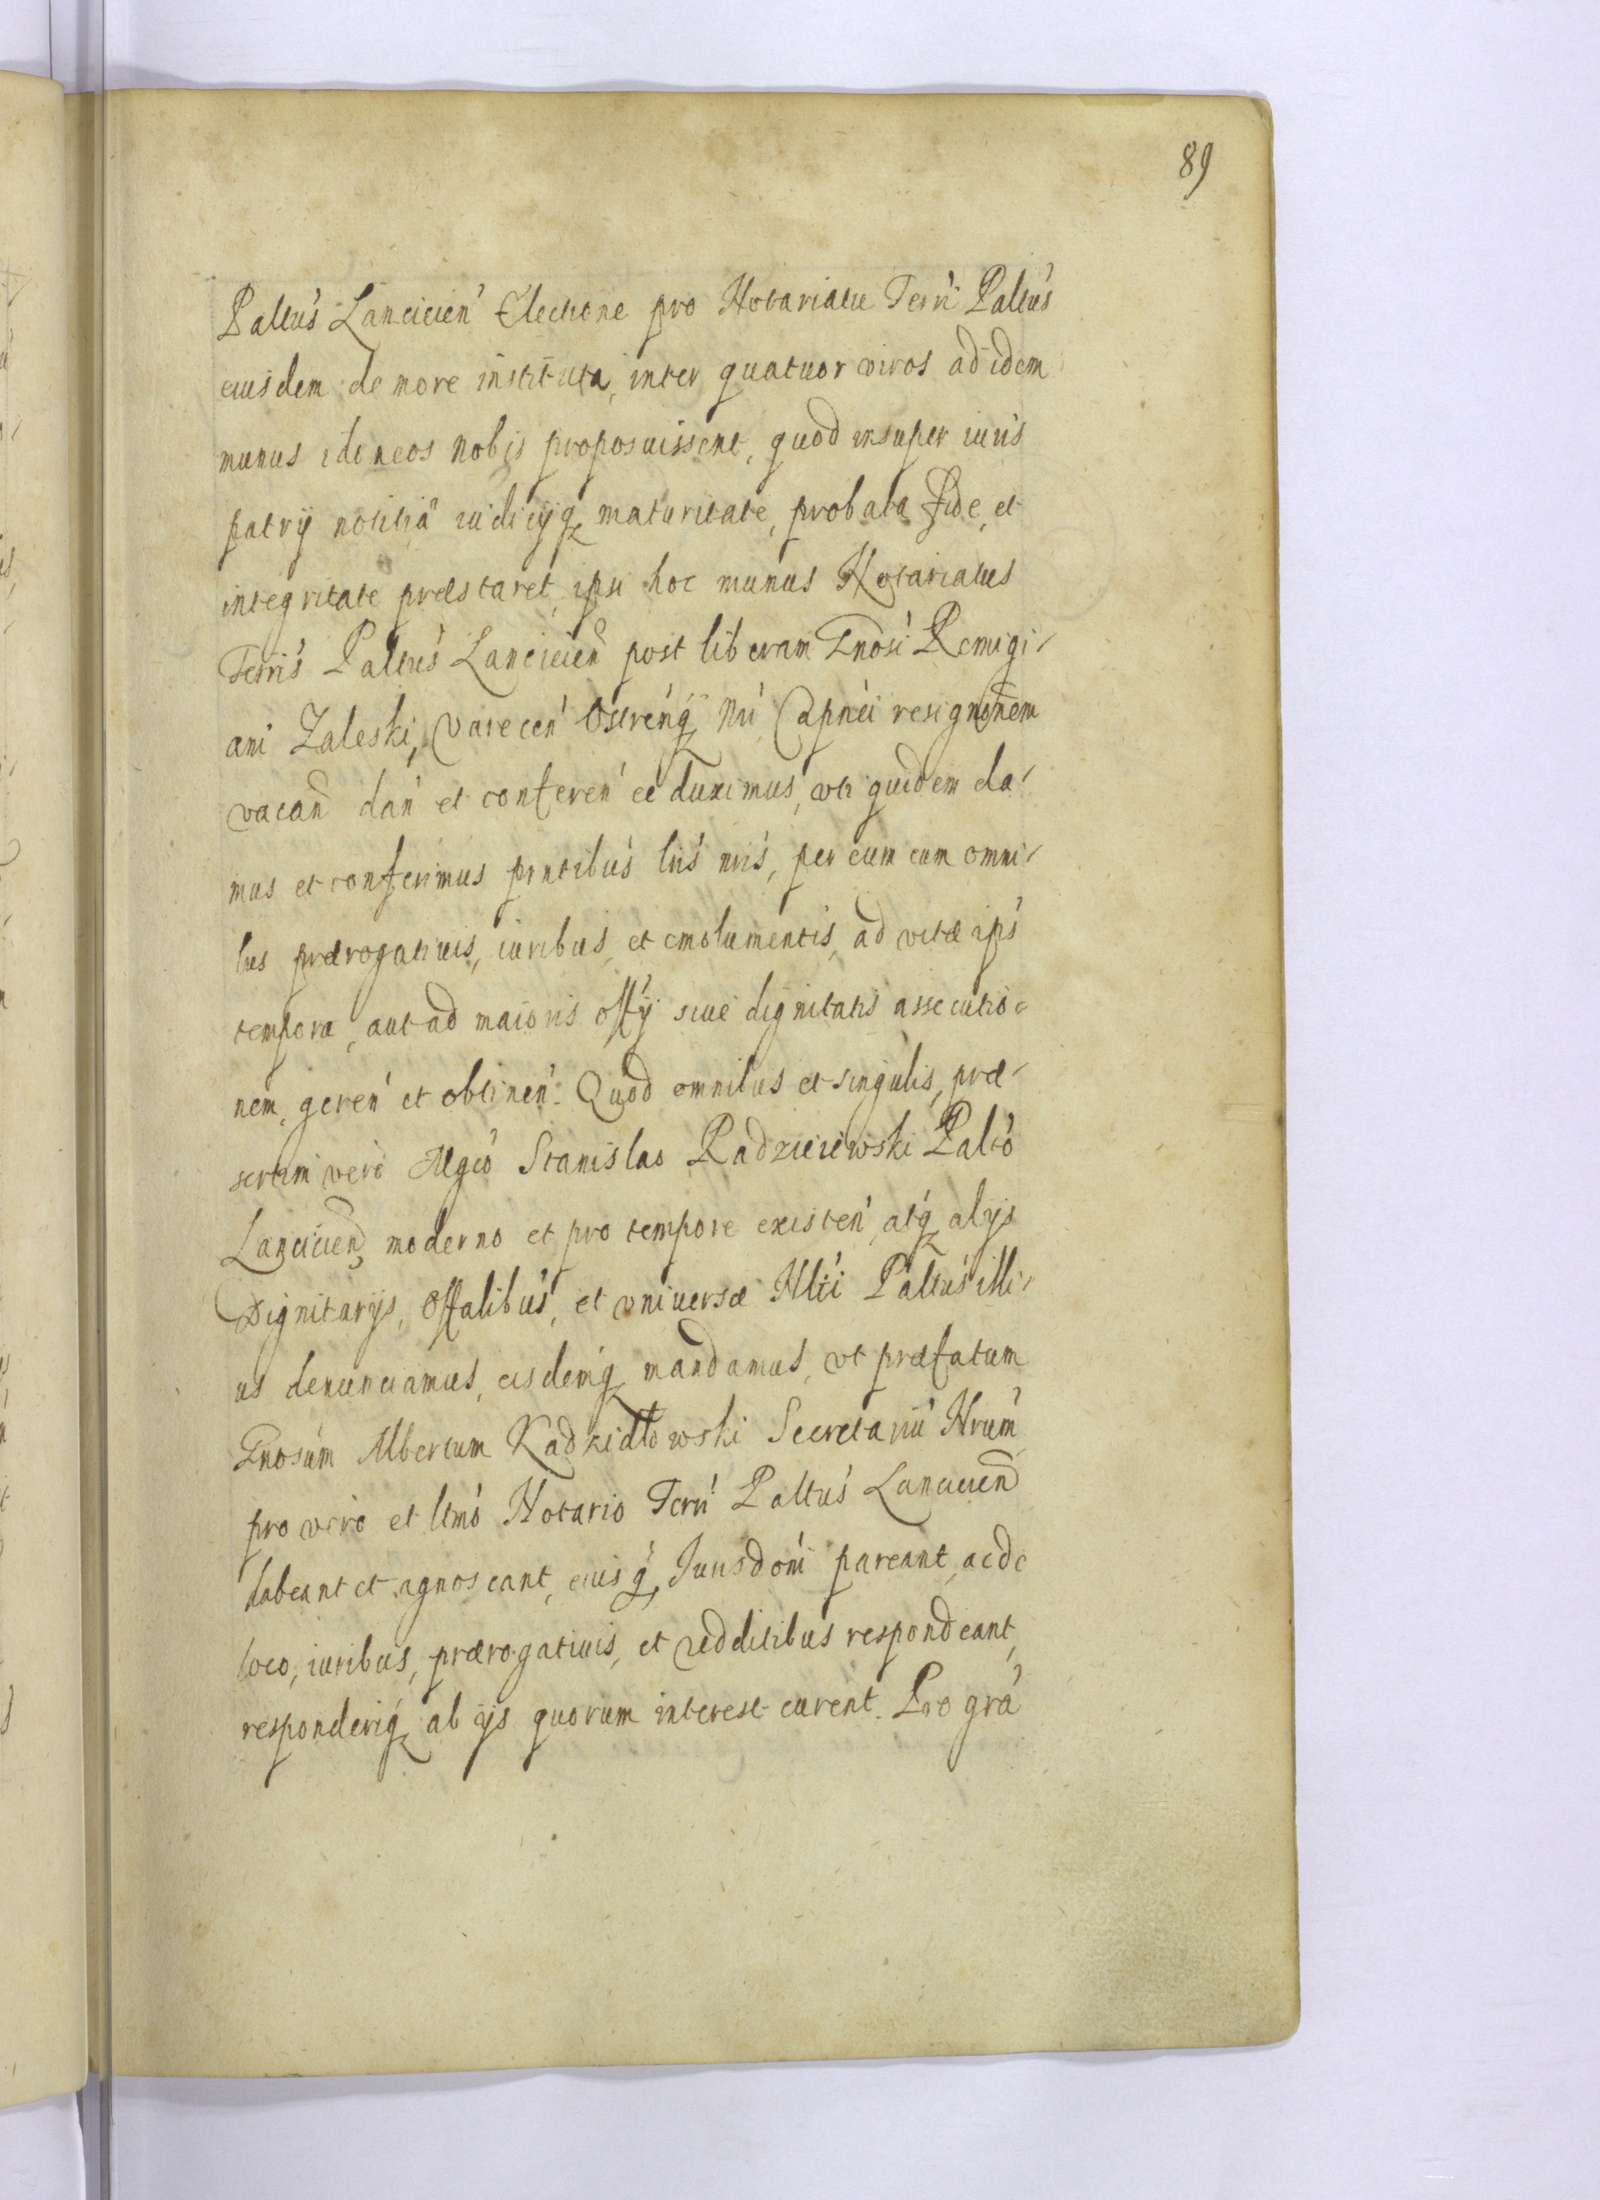 89
Paltus Lancicien Electione pro Notariatu Terri Paltus
eiusdem de more instituta, inter quatuor viros ad idem
munus idoneos nobis proposuissent, quod insuper iuris
patrÿ notitiâ iudicÿq maturitate, probata fide, et
integritate præstaret, ipsi hoc munus Notariatus
Terris Paltus Lancicien post liberam Gnosi Remigi-
ani Zaleski, Varecen Ostrenq Nri Capnei resignonem
vacan dan et conferen ee duximus, vti quidem da-
mus et conferimus pntibus lris nris, per eum cum omni-
bus prærogatiuis, iuribus, et emolumentis, ad vitæ ips
tempora, aut ad maioris offÿ siue dignitatis assecutio-
nem, geren et obtinen. Quod omnibus et singulis, præ-
sertim vero Mgco Stanislao Radzieiewski Palto
Lancicien, moderno et pro tempore existen, atq alÿs
Dignitarÿs, Offalibus, et vniversæ Nlti Paltus illi-
us denunciamus, eisdemq mandamus, vt præfatum
Gnosum Albertum Kadzidłowski Secretariu Nrum
pro vero et ltmo Notario Terri Paltus Lancicien
habeant et agnoscant, eiusq, Iurisdoni pareant, ac de
loco, iuribus, prærogatiuis, et redditibus respondeant,
responderiq ab ijs quorum interest curent. Pro gra